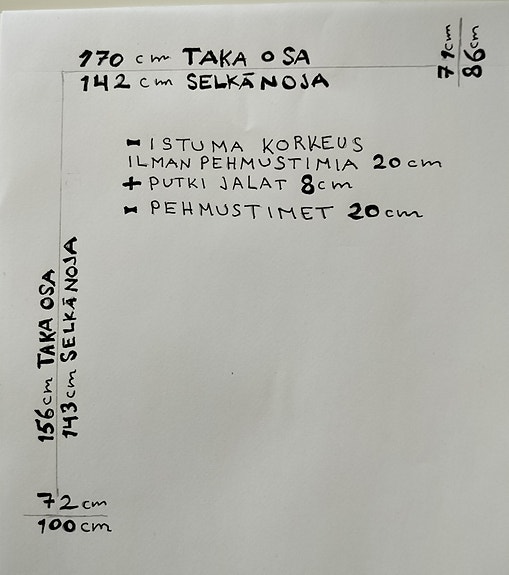 170 cm TAKA OSA
142 cm SELKÄNOJA
71cm
86cm
- ISTUMA KORKEUS
ILMAN PEHMUSTIMIA 20cm
+ PUTKI JALAT 8cm
- PEHMUSTIMET 20cm
156cm TAKA OSA
143cm SELKÄNOJA
72cm
100cm